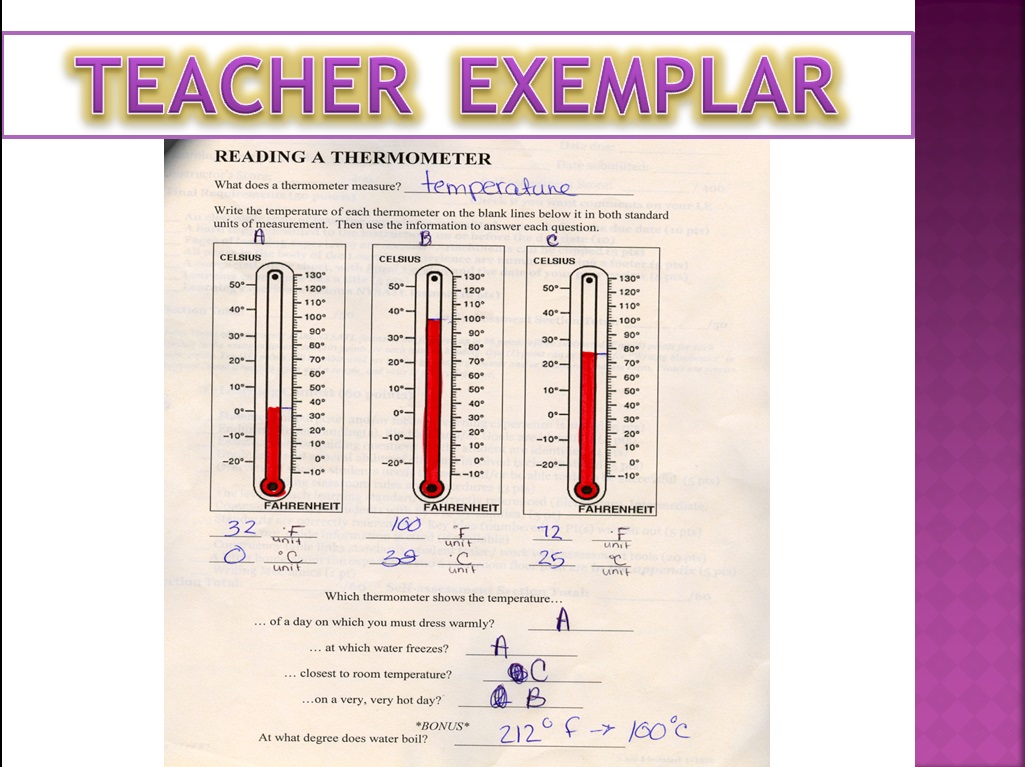 TEACHER EXEMPLAR
READING A THERMOMETER
What does a thermometer measure? temperature
Write the temperature of each thermometer on the blank lines below it in both standard
units of measurement. Then use the information to answer each question.
A B C
CELSIUS CELSIUS CELSIUS
50° 40° 30° 20° 10° 0° –10° –20°
130° 120° 110° 100° 90° 80° 70° 60° 50° 40° 30° 20° 10° 0° –10°
50° 40° 30° 20° 10° 0° –10° –20°
130° 120° 110° 100° 90° 80° 70° 60° 50° 40° 30° 20° 10° 0° –10°
50° 40° 30° 20° 10° 0° –10° –20°
130° 120° 110° 100° 90° 80° 70° 60° 50° 40° 30° 20° 10° 0° –10°
FAHRENHEIT FAHRENHEIT FAHRENHEIT
32 °F 100 °F 72 °F
unit unit unit
0 °C 38 °C 25 °C
unit unit unit
Which thermometer shows the temperature…
… of a day on which you must dress warmly? A
… at which water freezes? A
… closest to room temperature? C
…on a very, very hot day? B
*BONUS*
At what degree does water boil? 212° f → 100°C